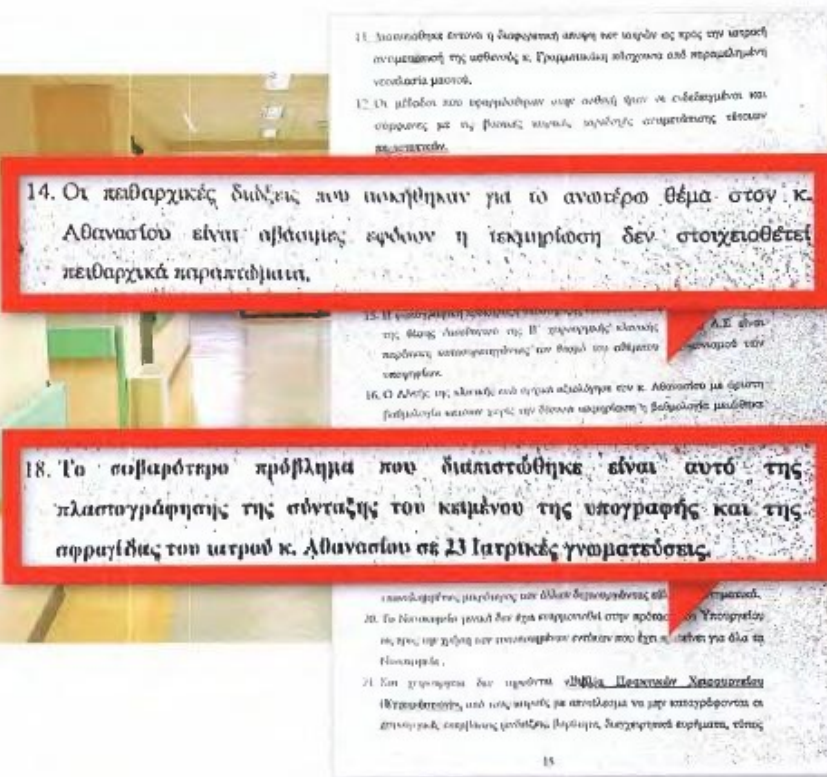 11. Διαπιστώθηκε έντονα η διαφορετική άποψη των ιατρών ως προς την ιατρική
αντιμετώπιση της ασθενούς κ. Γραμματικάκη πάσχουσα από παραμελημένη
νεοπλασία μαστού.
12. Οι μέθοδοι που εφαρμόσθηκαν στην ασθενή ήταν οι ενδεδειγμένοι και
σύμφωνες με τις βασικές αρχές αντιμετώπισης τέτοιων
περιστατικών.
14. Οι πειθαρχικές διώξεις που ασκήθηκαν για το ανωτέρω θέμα στον κ.
Αθανασίου είναι αβάσιμες εφόσον η τεκμηρίωση δεν στοιχειοθετεί
πειθαρχικά παραπτώματα.
15. Η
της θέσης της Β' χειρουργικής κλινικής Α.Σ είναι
παράνομη τον θεσμό του αθέμιτου των
υποψηφίων.
16. Ο Δ/ντής της κλινικής ενώ αρχικά αξιολόγησε τον κ. Αθανασίου με άριστη
βαθμολογία κατόπιν χωρίς την δέουσα τεκμηρίωση η βαθμολογία μειώθηκε
18. Το σοβαρότερο πρόβλημα που διαπιστώθηκε είναι αυτό της
πλαστογράφησης της σύνταξης του κειμένου της υπογραφής και της
σφραγίδας του ιατρού κ. Αθανασίου σε 23 Ιατρικές γνωματεύσεις.
των άλλων δημιουργώντας
20. Το Νοσοκομείο γενικά δεν έχει εναρμονισθεί στην πρόταση Υπουργείου
ως προς την χρήση των εντύπων που έχει για όλα τα
Νοσοκομεία .
21. Στα χειρουργεία δεν τηρούνται «Βιβλία Πρακτικών Χειρουργείου
από τους ιατρούς με αποτέλεσμα να μην καταγράφονται οι
χειρουργικές επεμβάσεις διεγχειρητικά ευρήματα, τύπος
15